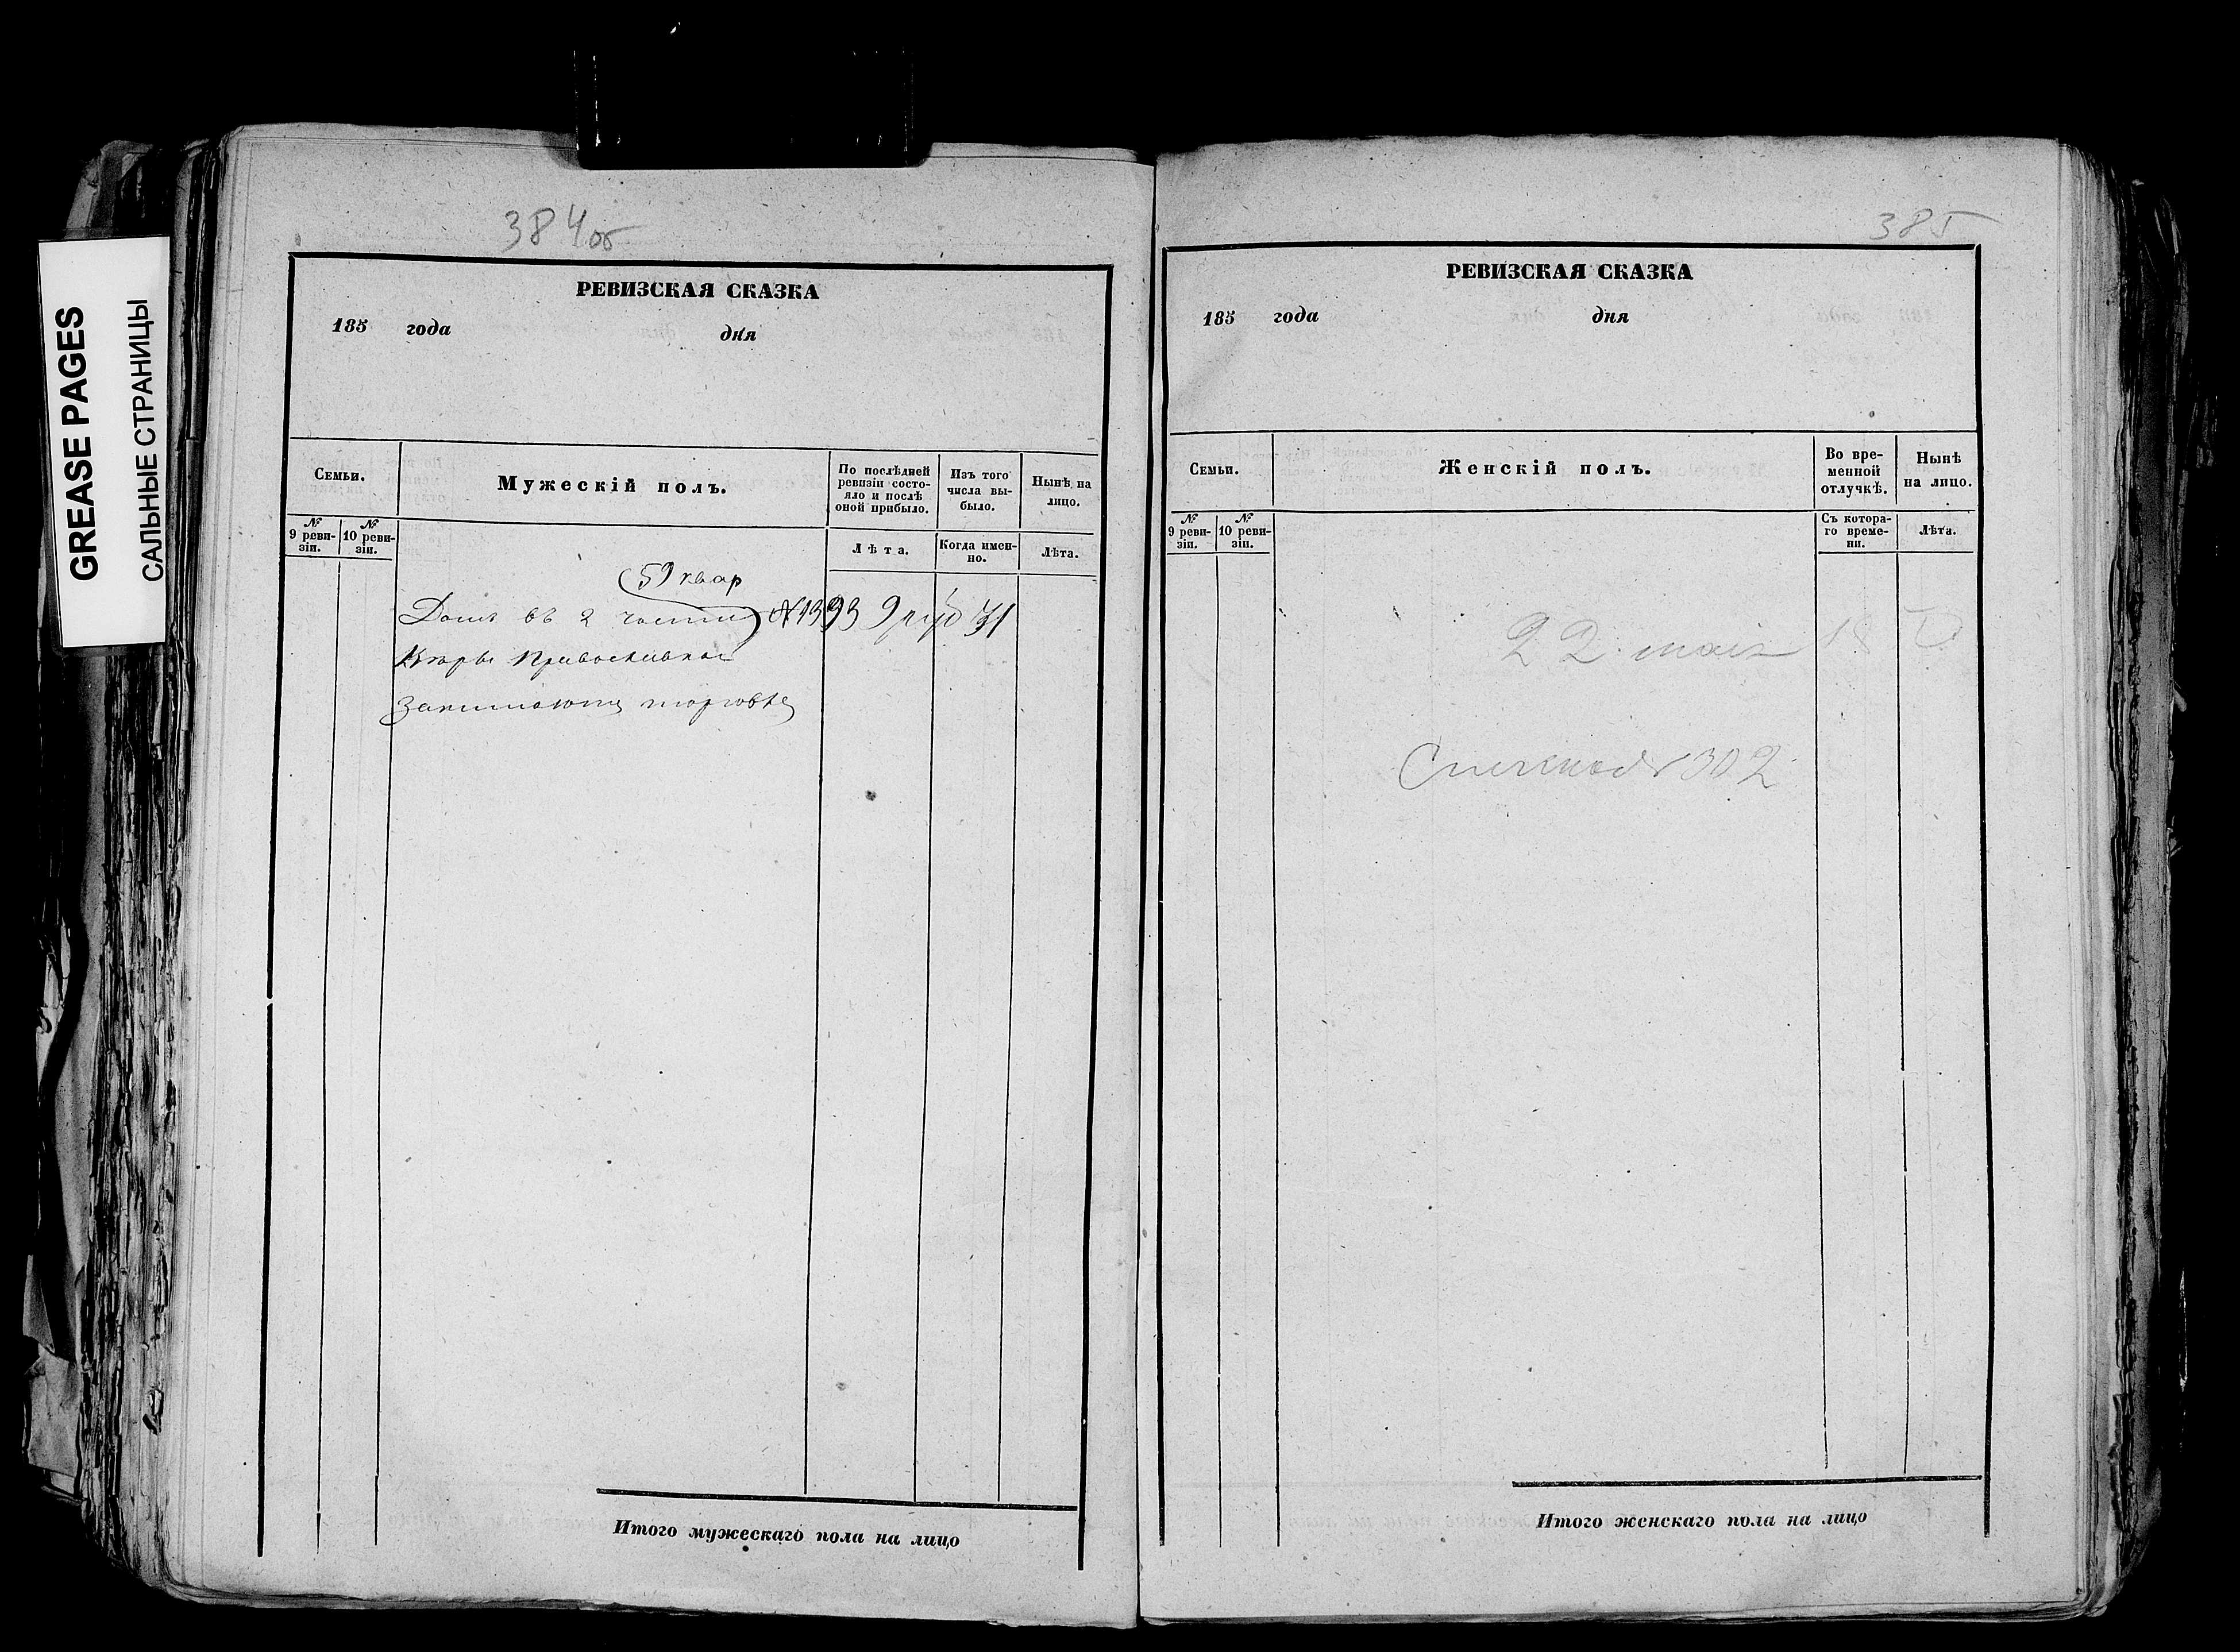 GREASE PAGES
САЛЬНЫЕ СТРАНИЦЫ
384об
РЕВИЗСКАЯ СКАЗКА
185 года дня
Семьи.
Мужескій полъ.
По послѣдней
ревизіи состо-
яло и послѣ
оной прибыло.
Изъ того
числа вы-
было.
Нынѣ на
лицо.
№
9 реви-
зіи.
№
10 реви-
зіи.
Лѣта.
Когда имен-
но.
Лѣта.
59 квар
Домъ въ 2 части № 1393 9 руб 71
Вѣры Православной
Занимаюсь торговлей
Итого мужескаго пола на лицо
385
РЕВИЗСКАЯ СКАЗКА
185 года дня
Семьи.
Женскій полъ.
Во вре-
менной
отлучкѣ.
Нынѣ
на лицо.
№
9 реви-
зіи.
№
10 реви-
зіи.
Съ котора-
го време-
ни.
Лѣта.
22 маія 18
302
Итого женскаго пола на лицо